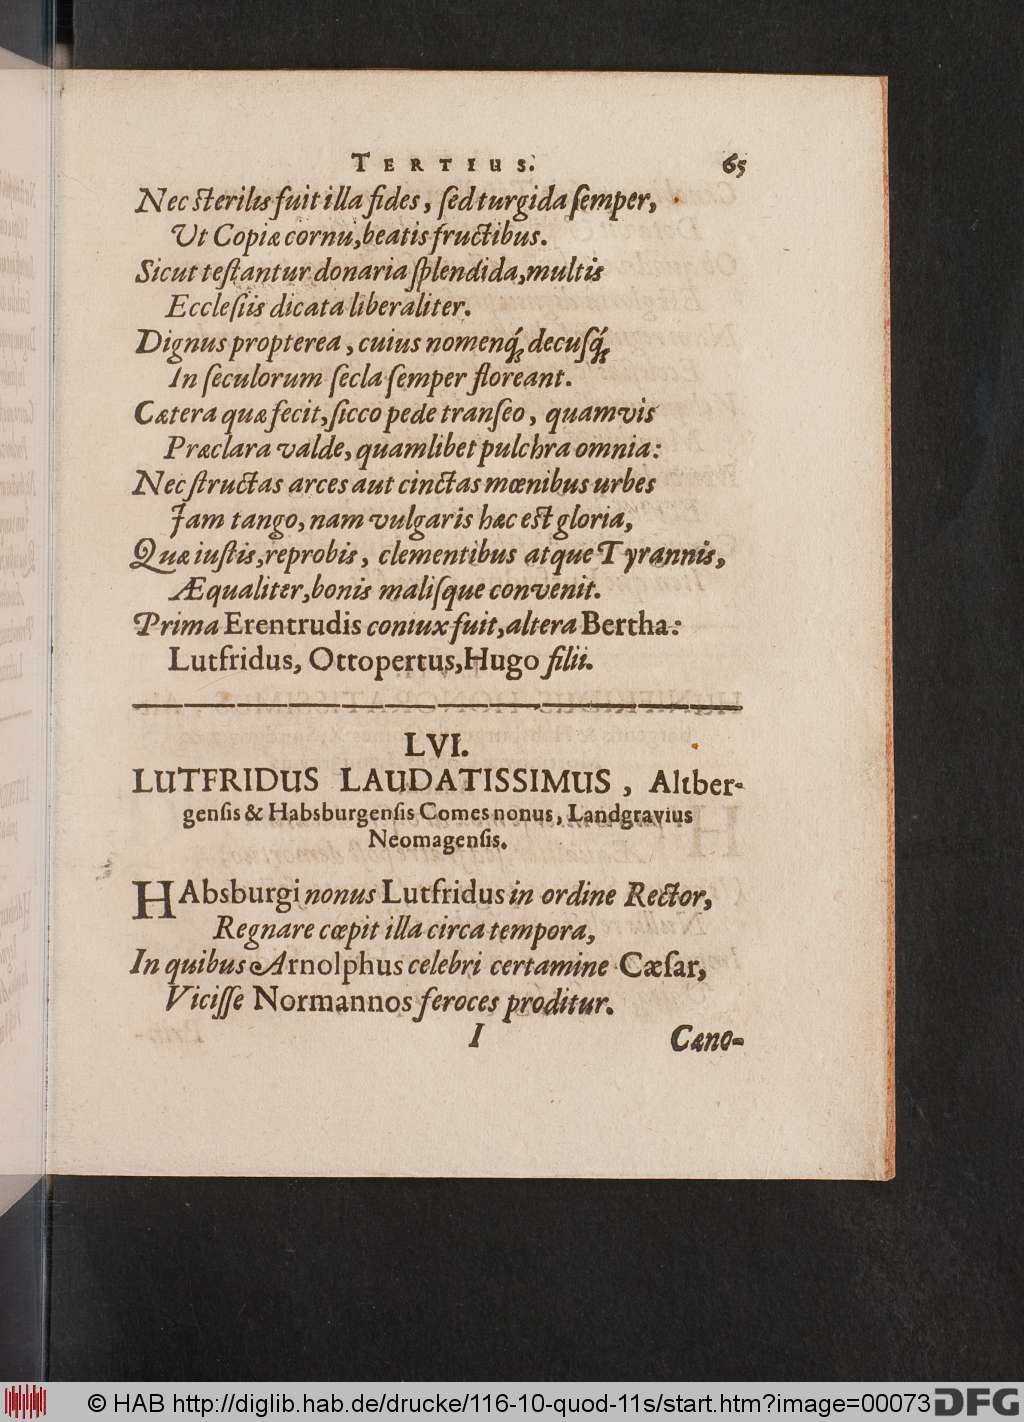 TERTIUS. 65
Nec sterilis fuit illa fides, ſed turgida ſemper,
Ut Copiæ cornu, beatis fructibus.
Sicut teſtantur donaria ſplendida, multis
Eccleſiis dicata liberaliter.
Dignus propterea, cuius nomenq́; decuſq́;
In ſeculorum ſecla ſemper floreant.
Cætera quæ fecit, ſicco pede tranſeo, quamvis
Præclara valde, quamlibet pulchra omnia:
Nec ſtructas arces aut cinctas mœnibus urbes
Jam tango, nam vulgaris hæc est gloria,
Quæ iuſtis, reprobis, clementibus atque Tyrannis,
Æqualiter, bonis maliſque convenit.
Prima Erentrudis coniux fuit, altera Bertha:
Lutfridus, Ottopertus, Hugo filii.
LVI.
LUTFRIDUS LAUDATISSIMUS, Altber-
genſis & Habsburgenſis Comes nonus, Landgravius
Neomagenſis.
HAbsburgi nonus Lutfridus in ordine Rector,
Regnare cœpit illa circa tempora,
In quibus Arnolphus celebri certamine Cæſar,
Viciſſe Normannos feroces proditur.
I Cæno-
© HAB http://diglib.hab.de/drucke/116-10-quod-11s/start.htm?image=00073 DFG